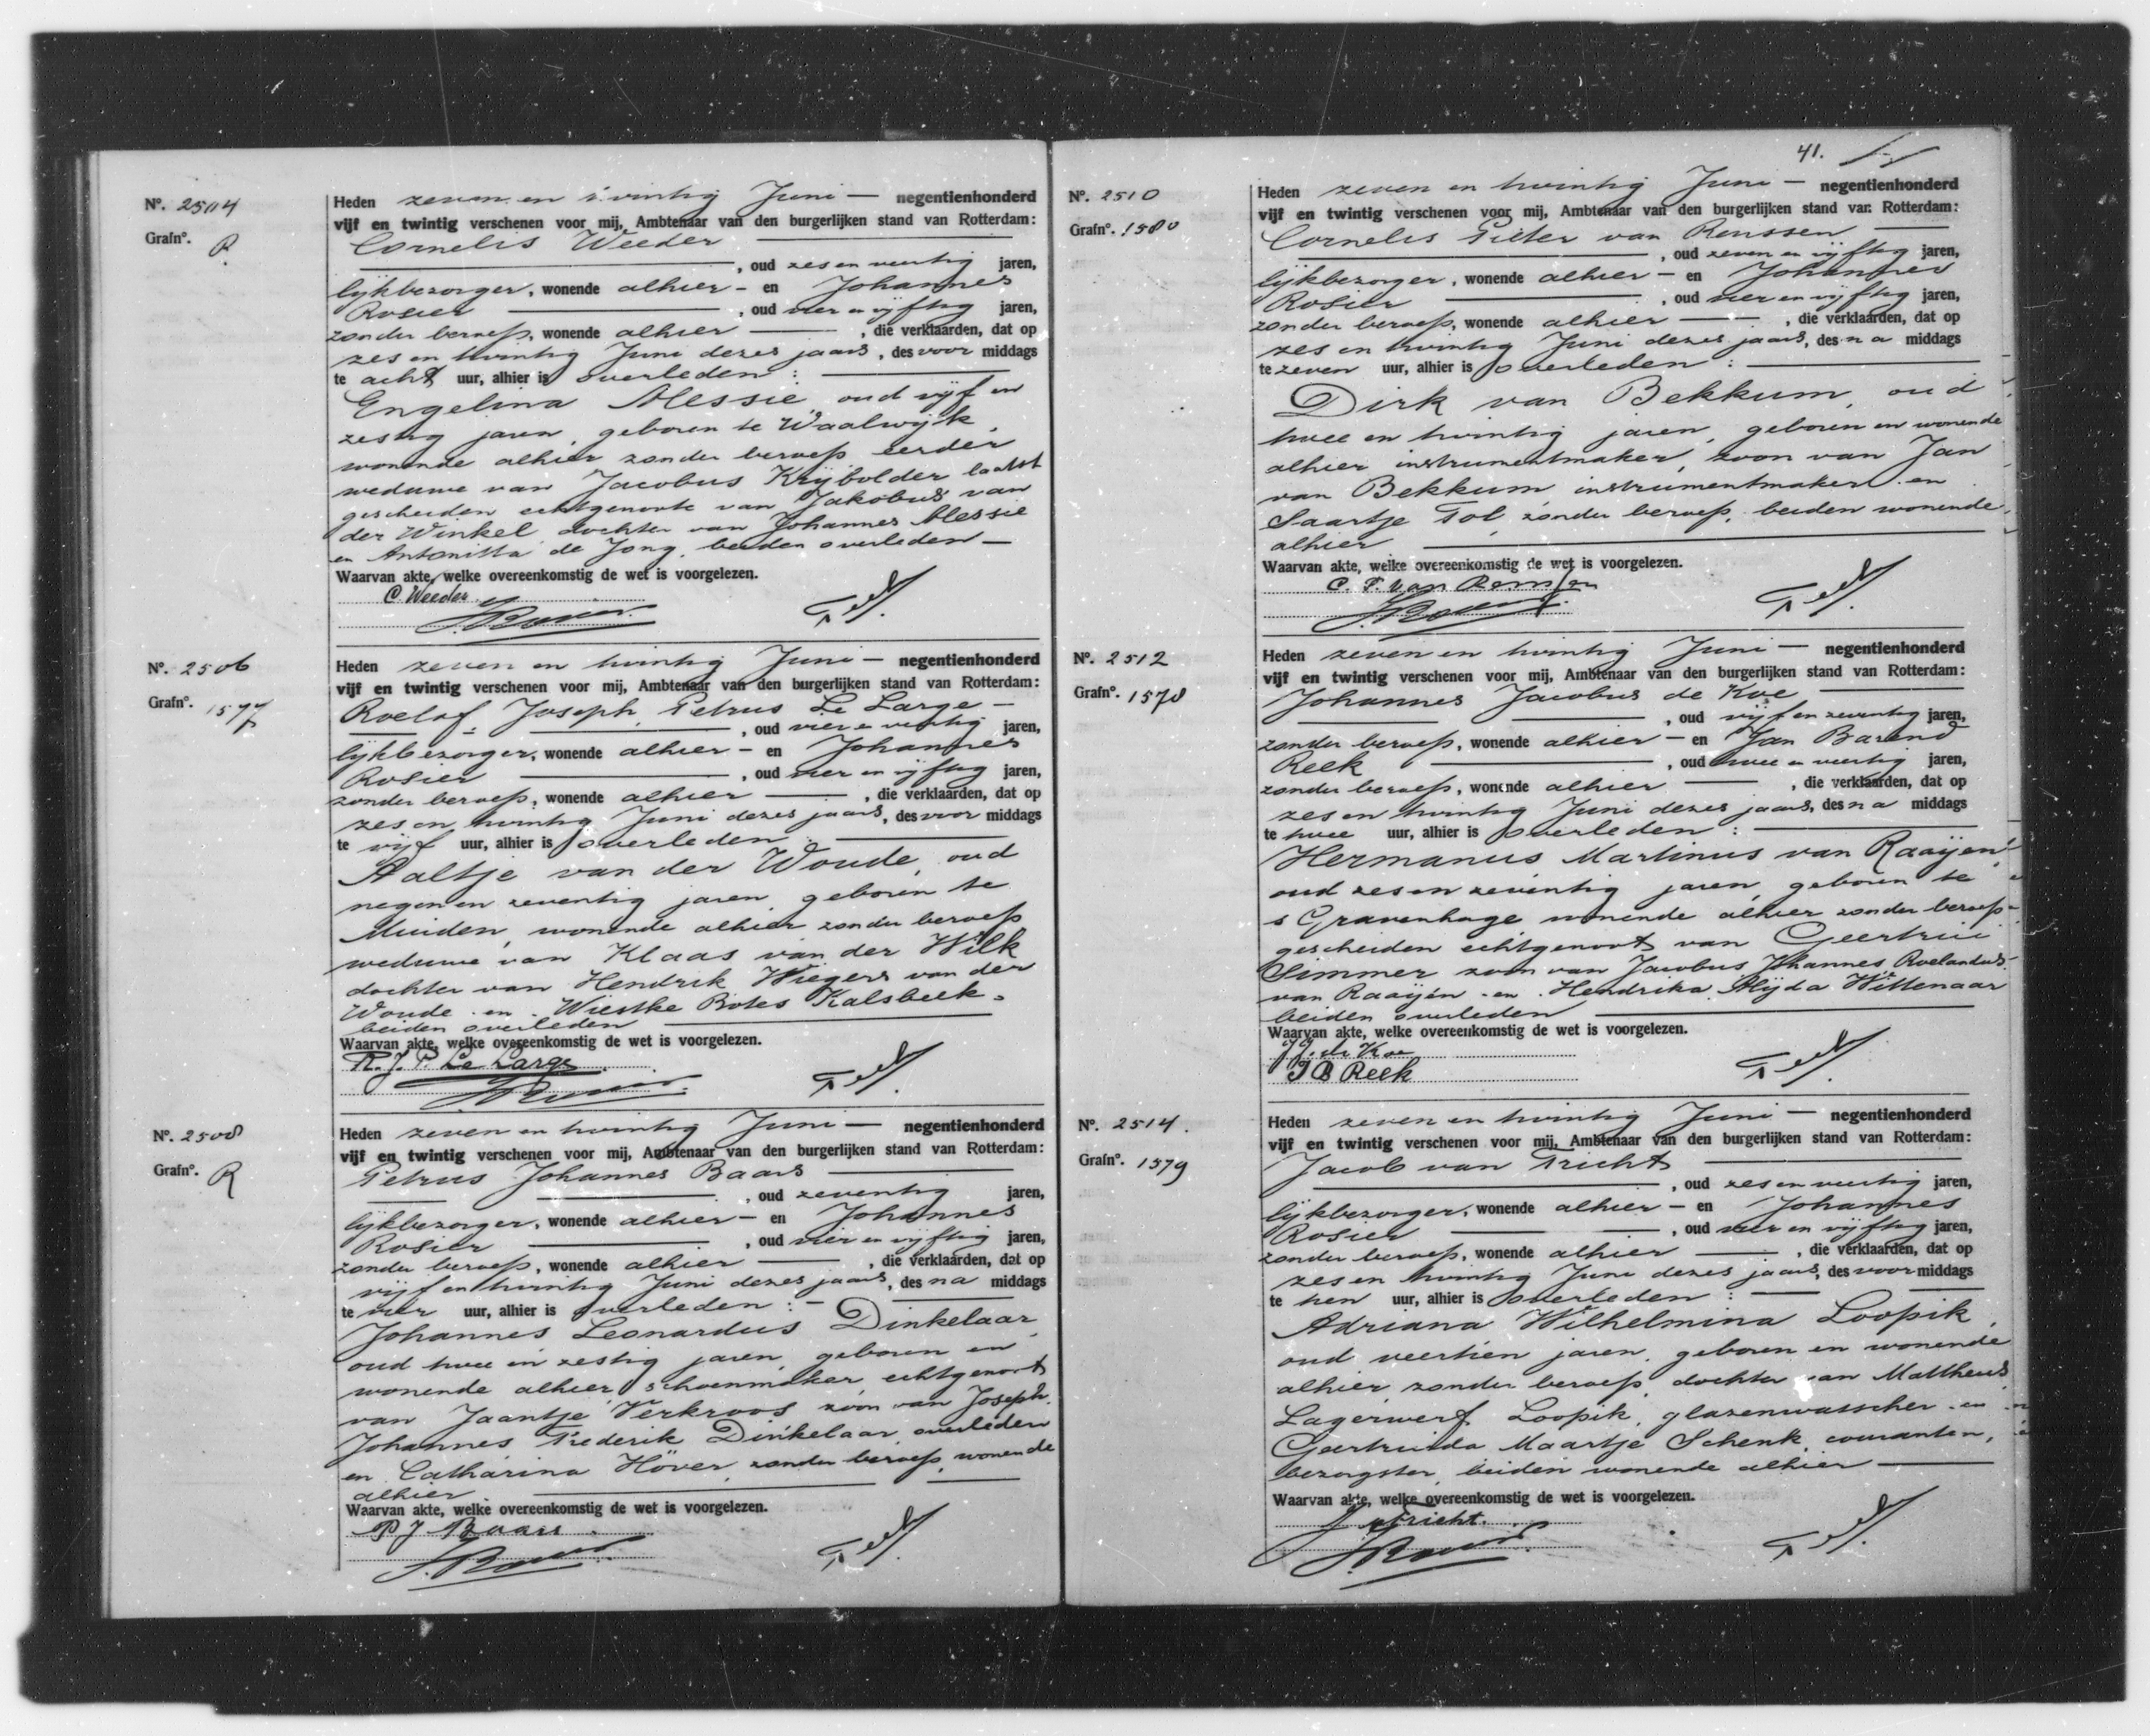 Nº. 2504
Grafnº. R
Heden zeven en twintig Juni — negentienhonderd
vijf en twintig verschenen voor mij, Ambtenaar van den burgerlijken stand van Rotterdam:
Cornelis Weeder
, oud zes en veertig jaren,
lijkbezorger, wonende alhier - en Johannes
Rosier , oud vier en vijftig jaren,
zonder beroep, wonende alhier , die verklaarden, dat op
zes en twintig Juni dezes jaars, des voor middags
te acht uur, alhier is overleden:
Engelina Messie, oud vijf en
zestig jaren, geboren te Waalwijk,
wonende alhier zonder beroep eerder
weduwe van Jacobus Krijbolder laatst
gescheiden echtgenoote van Jakobus van
der Winkel, dochter van Johannes Messie
en Antonitta de Jong, beiden overleden —
Waarvan akte, welke overeenkomstig de wet is voorgelezen.
C. Weeder
J. Rosier
Nº. 2506
Grafnº. 1577
Heden zeven en twintig Juni — negentienhonderd
vijf en twintig verschenen voor mij, Ambtenaar van den burgerlijken stand van Rotterdam:
Roelof Joseph Petrus Le Large -
, oud vier en veertig jaren,
lijkbezorger, wonende alhier - en Johannes
Rosier , oud vier en vijftig jaren,
zonder beroep, wonende alhier , die verklaarden, dat op
zes en twintig Juni dezes jaars, des voor middags
te vijf uur, alhier is overleden:
Aaltje van der Woude, oud
negen en zeventig jaren, geboren te
Muiden, wonende alhier zonder beroep
weduwe van Klaas van der Wilk
dochter van Hendrik Wiegers van der
Woude en Wiestke Botes Kalsbeek
beiden overleden
Waarvan akte, welke overeenkomstig de wet is voorgelezen.
R. J. P. Le Large
J. Rosier
Nº. 2508
Grafnº. R
Heden zeven en twintig Juni — negentienhonderd
vijf en twintig verschenen voor mij, Ambtenaar van den burgerlijken stand van Rotterdam:
Petrus Johannes Baars
, oud zeventig jaren,
lijkbezorger, wonende alhier - en Johannes
Rosier , oud vier en vijftig jaren,
zonder beroep, wonende alhier , die verklaarden, dat op
vijf en twintig Juni dezes jaars, des na middags
te vier uur, alhier is overleden: -
Johannes Leonardus Dinkelaar,
oud twee en zestig jaren, geboren en
wonende alhier, schoenmaker, echtgenoot
van Jaantje Verkroos zoon van Joseph
Johannes Frederik Dinkelaar, overleden
en Catharina Höver, zonder beroep, wonende
alhier
Waarvan akte, welke overeenkomstig de wet is voorgelezen.
P J Baars
J. Rosier
41.
Nº. 2510
Grafnº. 1580
Heden zeven en twintig Juni — negentienhonderd
vijf en twintig verschenen voor mij, Ambtenaar van den burgerlijken stand van Rotterdam:
Cornelis Pieter van Renssen
, oud zeven en vijftig jaren,
lijkbezorger, wonende alhier - en Johannes
Rosier , oud vier en vijftig jaren,
zonder beroep, wonende alhier , die verklaarden, dat op
zes en twintig Juni dezes jaars, des na middags
te zeven uur, alhier is overleden:
Dirk van Bekkum, oud
twee en twintig jaren, geboren en wonende
alhier instrumentmaker, zoon van Jan
van Bekkum, instrumentmaker en
Saartje Tol, zonder beroep, beiden wonende
alhier
Waarvan akte, welke overeenkomstig de wet is voorgelezen.
C. P. van Renssen
J. Rosier
Nº. 2512
Grafnº. 1578
Heden zeven en twintig Juni — negentienhonderd
vijf en twintig verschenen voor mij, Ambtenaar van den burgerlijken stand van Rotterdam:
Johannes Jacobus de Koe
, oud vijf en zeventig jaren,
zonder beroep, wonende alhier - en Jan Barend
Reek , oud twee en veertig jaren,
zonder beroep, wonende alhier , die verklaarden, dat op
zes en twintig Juni dezes jaars, des na middags
te twee uur, alhier is overleden:
Hermanus Martinus van Raaijen
oud zes en zeventig jaren, geboren te
s Gravenhage wonende alhier zonder beroep
gescheiden echtgenoot van Geertrui
Simmer zoon van Jacobus Johannes Roelandus
van Raaijen en Hendrika Alijda Wittenaar
beiden overleden
Waarvan akte, welke overeenkomstig de wet is voorgelezen.
J J. de Koe
J B Reek
Nº. 2514.
Grafnº. 1579
Heden zeven en twintig Juni — negentienhonderd
vijf en twintig verschenen voor mij, Ambtenaar van den burgerlijken stand van Rotterdam:
Jacob van Tricht
, oud zes en veertig jaren,
lijkbezorger, wonende alhier - en Johannes
Rosier , oud vier en vijftig jaren,
zonder beroep, wonende alhier , die verklaarden, dat op
zes en twintig Juni dezes jaars, des voor middags
te tien uur, alhier is overleden:
Adriana Wilhelmina Loopik,
oud veertien jaren, geboren en wonende
alhier, zonder beroep, dochter van Mattheus
Lagerwerf Loopik, glazenwasscher en
Geertruida Maartje Schenk, couranten,
bezorgster, beiden wonende alhier
Waarvan akte, welke overeenkomstig de wet is voorgelezen.
J v Tricht.
J. Rosier